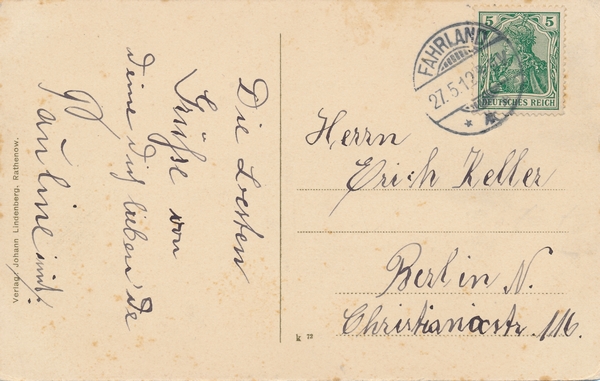 Die besten
Grüße von
deine dich liebende
Pauline
Verlag Johann Lindenberg, Rathenow.
k 72
FAHRLAND
27.5.12
5 5
DEUTSCHES REICH
Herrn
Erich Keller
Berlin N.
Christianiastr. 116.